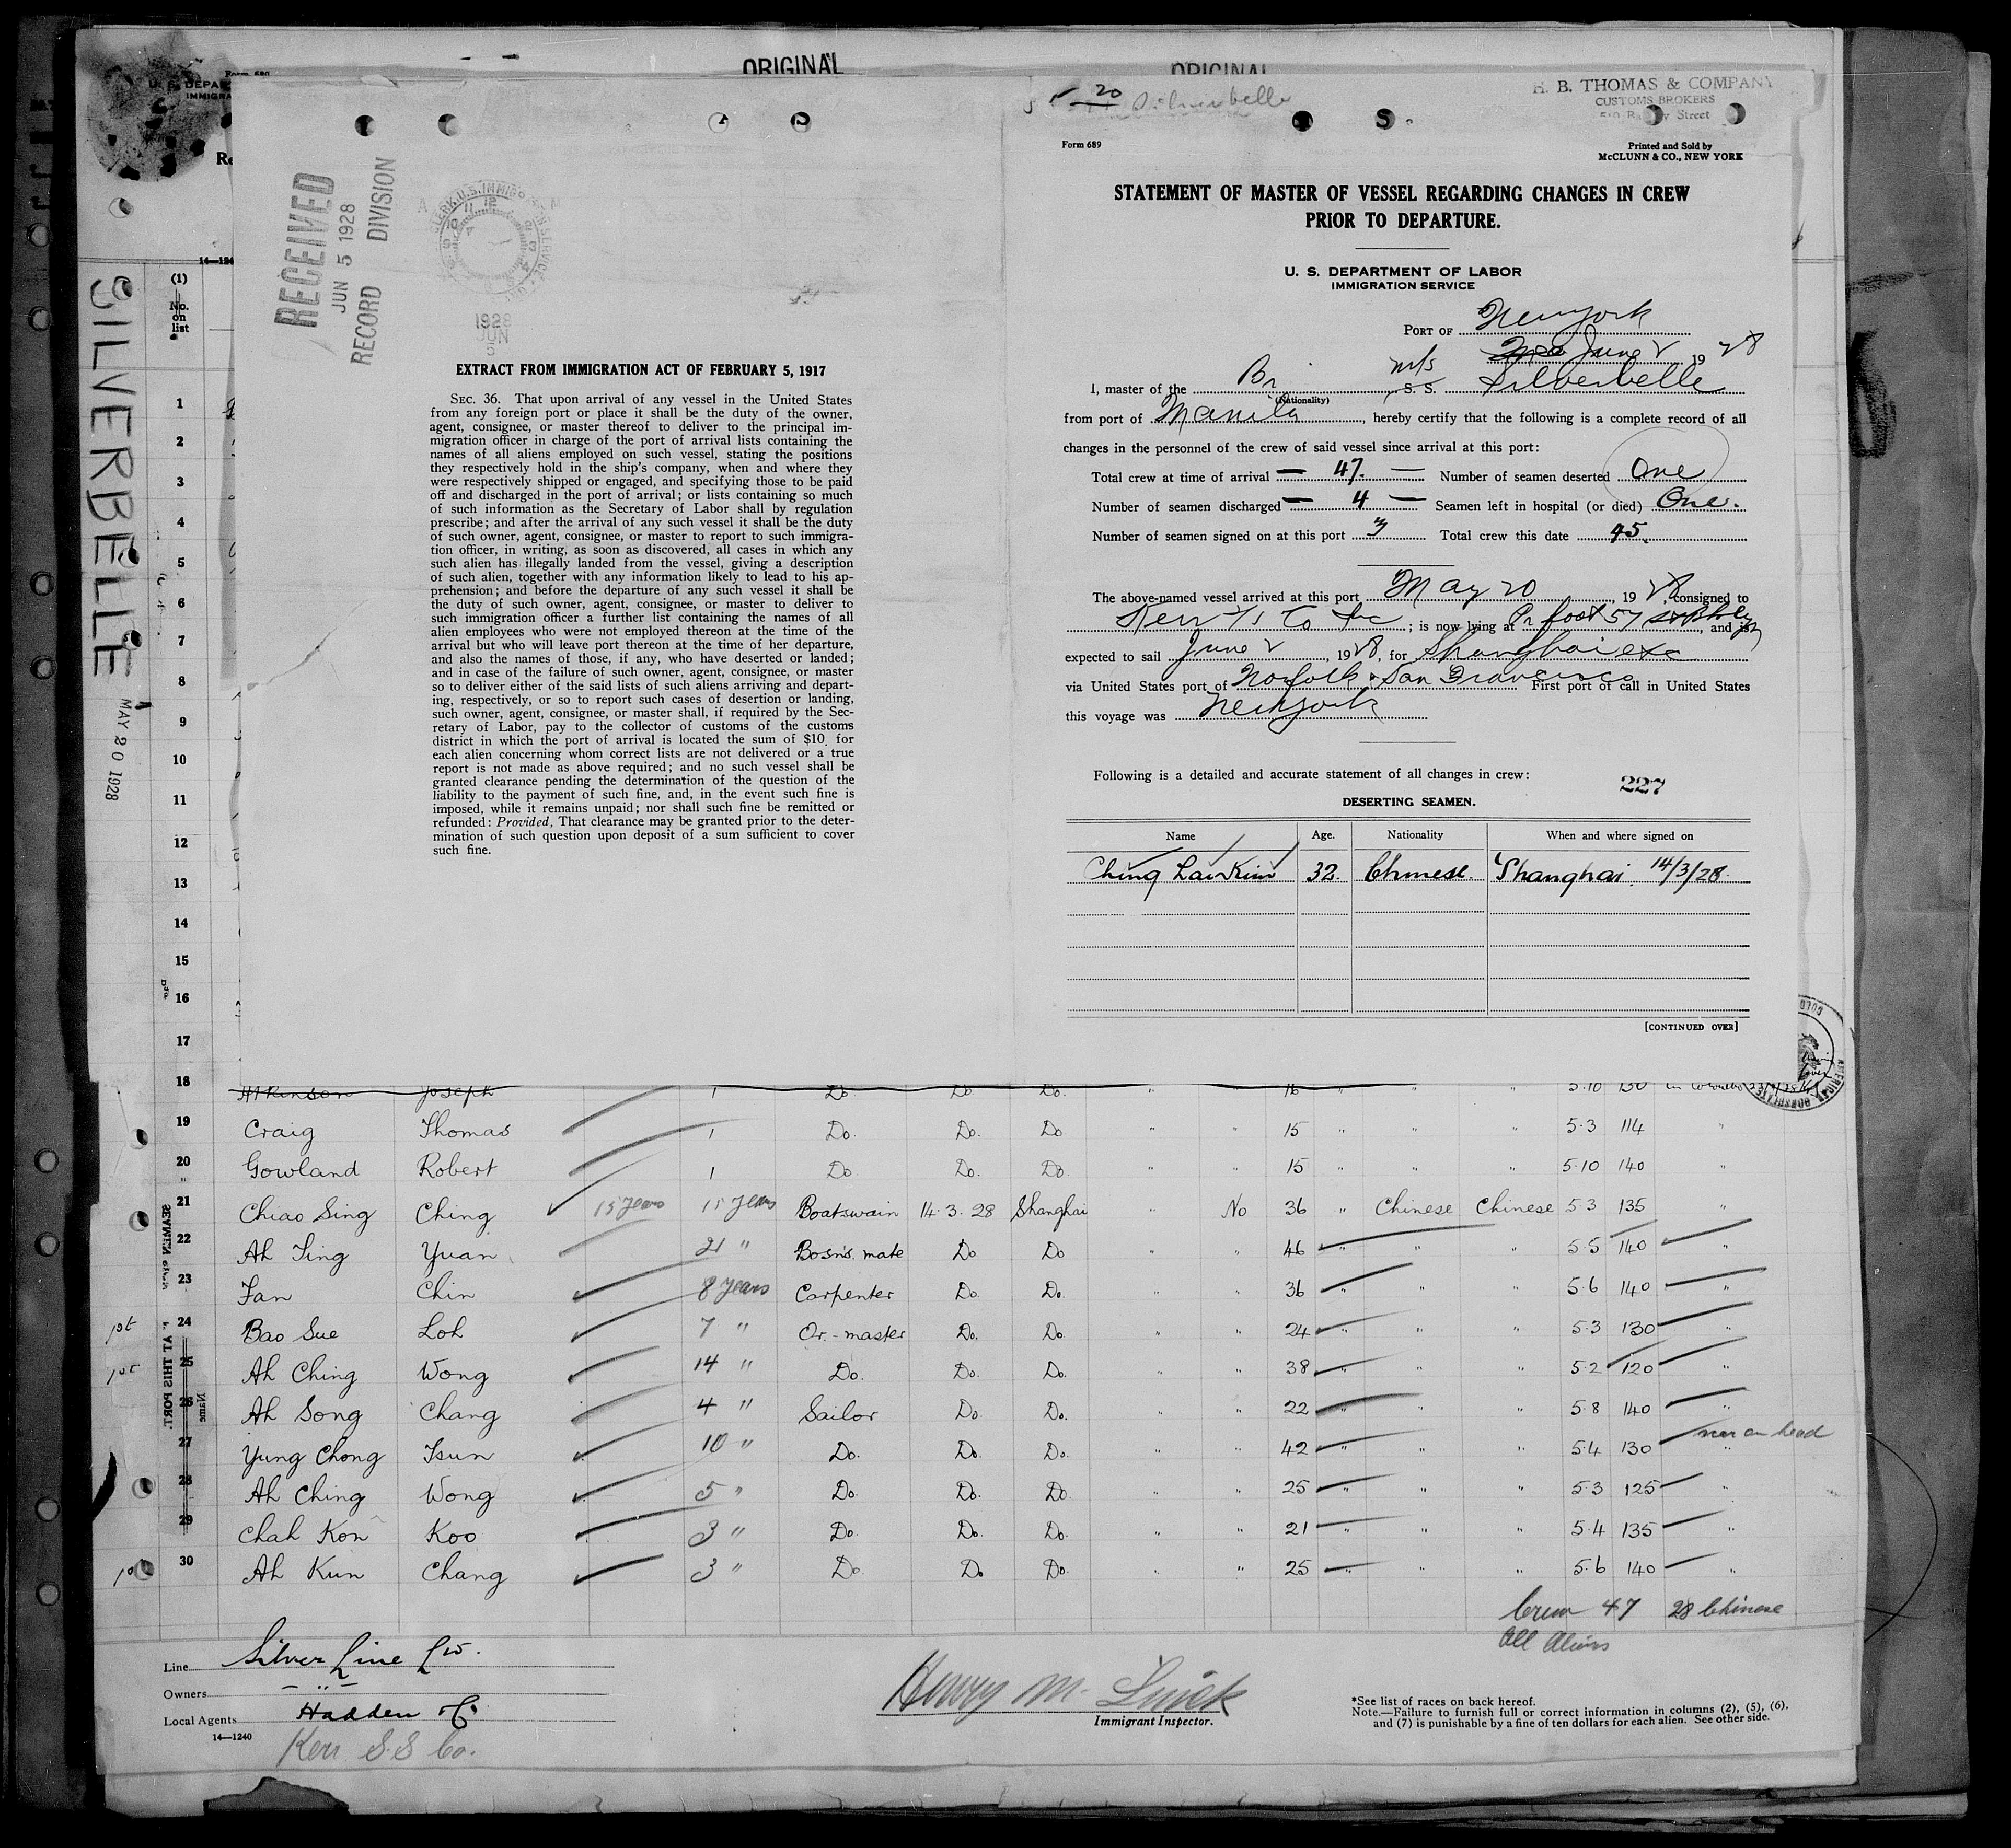 ORIGINAL
ORIGINAL
Form 689
U. S. DEPAR
IMMIGRA
5-20 Silverbelle
H. B. THOMAS & COMPANY
CUSTOMS BROKERS
Street
RECEIVED
JUN 5 1928
RECORD DIVISION
1928
JUN
5
EXTRACT FROM IMMIGRATION ACT OF FEBRUARY 5, 1917
SEC. 36. That upon arrival of any vessel in the United States
from any foreign port or place it shall be the duty of the owner,
agent, consignee, or master thereof to deliver to the principal im-
migration officer in charge of the port of arrival lists containing the
names of all aliens employed on such vessel, stating the positions
they respectively hold in the ship's company, when and where they
were respectively shipped or engaged, and specifying those to be paid
off and discharged in the port of arrival; or lists containing so much
of such information as the Secretary of Labor shall by regulation
prescribe; and after the arrival of any such vessel it shall be the duty
of such owner, agent, consignee, or master to report to such immigra-
tion officer, in writing, as soon as discovered, all cases in which any
such alien has illegally landed from the vessel, giving a description
of such alien, together with any information likely to lead to his ap-
prehension; and before the departure of any such vessel it shall be
the duty of such owner, agent, consignee, or master to deliver to
such immigration officer a further list containing the names of all
alien employees who were not employed thereon at the time of the
arrival but who will leave port thereon at the time of her departure,
and also the names of those, if any, who have deserted or landed;
and in case of the failure of such owner, agent, consignee, or master
so to deliver either of the said lists of such aliens arriving and depart-
ing, respectively, or so to report such cases of desertion or landing,
such owner, agent, consignee, or master shall, if required by the Sec-
retary of Labor, pay to the collector of customs of the customs
district in which the port of arrival is located the sum of $10 for
each alien concerning whom correct lists are not delivered or a true
report is not made as above required; and no such vessel shall be
granted clearance pending the determination of the question of the
liability to the payment of such fine, and, in the event such fine is
imposed, while it remains unpaid; nor shall such fine be remitted or
refunded: Provided, That clearance may be granted prior to the deter-
mination of such question upon deposit of a sum sufficient to cover
such fine.
Form 689
Printed and Sold by
McCLUNN & CO., NEW YORK
STATEMENT OF MASTER OF VESSEL REGARDING CHANGES IN CREW
PRIOR TO DEPARTURE.
U. S. DEPARTMENT OF LABOR
IMMIGRATION SERVICE
PORT OF New York
June 2 1928
I, master of the Br (Nationality) m/s S.S. Silverbelle
from port of Manila, hereby certify that the following is a complete record of all
changes in the personnel of the crew of said vessel since arrival at this port:
Total crew at time of arrival — 47. — Number of seamen deserted One
Number of seamen discharged — 4 — Seamen left in hospital (or died) One.
Number of seamen signed on at this port 3 Total crew this date 45.
The above-named vessel arrived at this port May 20, 1928, consigned to
Kerr S/S Co Inc; is now lying at Pr foot 57 St Bklyn, and is
expected to sail June 2, 1928, for Shanghai etc
via United States port of Norfolk & San Francisco First port of call in United States
this voyage was New York
Following is a detailed and accurate statement of all changes in crew:
227
DESERTING SEAMEN.
Name Age. Nationality When and where signed on
Ching Law Kim 32. Chinese. Shanghai. 14/3/28.
[CONTINUED OVER]
SILVERBELLE
MAY 20 1928
14—124
(1)
No. on list
1
2
3
4
5
6
7
8
9
10
11
12
13
14
15
16
17
18 Atkinson Joseph 1 Do. Do. Do. " " 16 " " " 5.10 130
19 Craig Thomas 1 Do. Do. Do " " 15 " " " 5.3 114 "
20 Gowland Robert 1 Do Do. Do. " " 15 " " " 5.10 140 "
21 Chiao Sing Ching 15 years 15 years Boatswain 14.3.28 Shanghai " No 36 " Chinese Chinese 5.3 135 "
22 Ah Ting Yuan 21 " Bosn's. mate Do Do " " 46 " " " 5.5 140 "
23 Fan Chin 8 years Carpenter Do. Do. " " 36 " " " 5.6 140 "
1st 24 Bao Sue Loh 7 " Qr.-master Do. Do. " " 24 " " " 5.3 130 "
1st 25 Ah Ching Wong 14 " Do. Do. Do. " " 38 " " " 5.2 120 "
26 Ah Song Chang 4 " Sailor Do. Do. " " 22 " " " 5.8 140 "
27 Yung Chong Tsun 10 " Do. Do. Do. " " 42 " " " 5.4 130 scar on head
28 Ah Ching Wong 5 " Do. Do. Do. " " 25 " " " 5.3 125 "
29 Chah Kon Koo 3 " Do. Do. Do. " " 21 " " " 5.4 135 "
30 Ah Kun Chang 3 " Do. Do. Do. " " 25 " " " 5.6 140 "
AT THIS PORT.
Name
Crew 47 28 Chinese
All Aliens
Line Silver Line Ltd.
Owners — " —
Local Agents Hadden & Co.
14—1240
Kerr S.S Co.
Immigrant Inspector.
*See list of races on back hereof.
Note.—Failure to furnish full or correct information in columns (2), (5), (6),
and (7) is punishable by a fine of ten dollars for each alien. See other side.